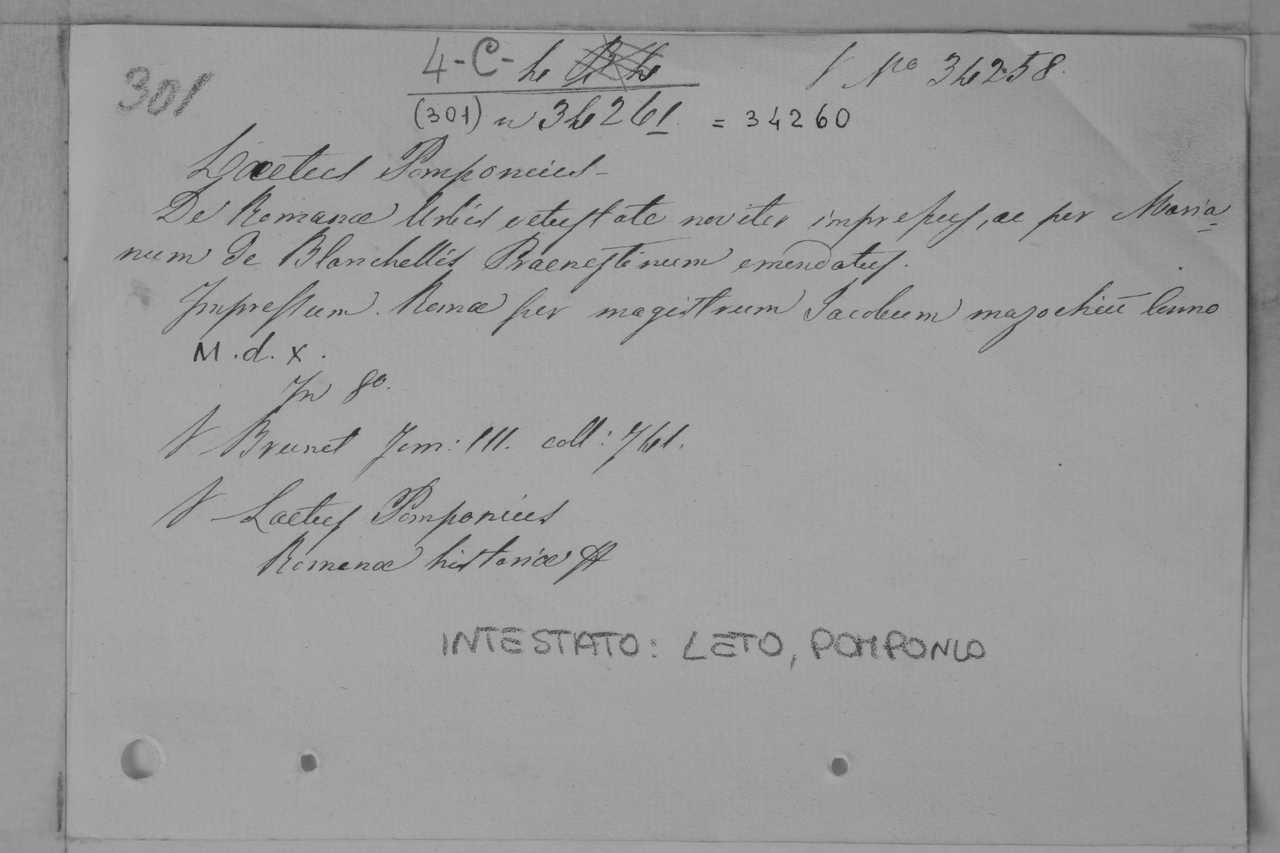 301
4-C-4
V Nº 34258.
(301) n 34261 = 34260
Laetus Pomponius-
De Romanæ Urbis vetustate noviter impressus, ac per Maria=
num de Blanchellis Praenestinum emendatus.
Impressum. Romæ per magistrum Jacobum mazochiū Anno
M.d.X.
In 8º.
V Brunet Tom: III. coll: 761.
V Laetus Pomponius
Romanæ historiæ
INTESTATO: LETO, POMPONIO